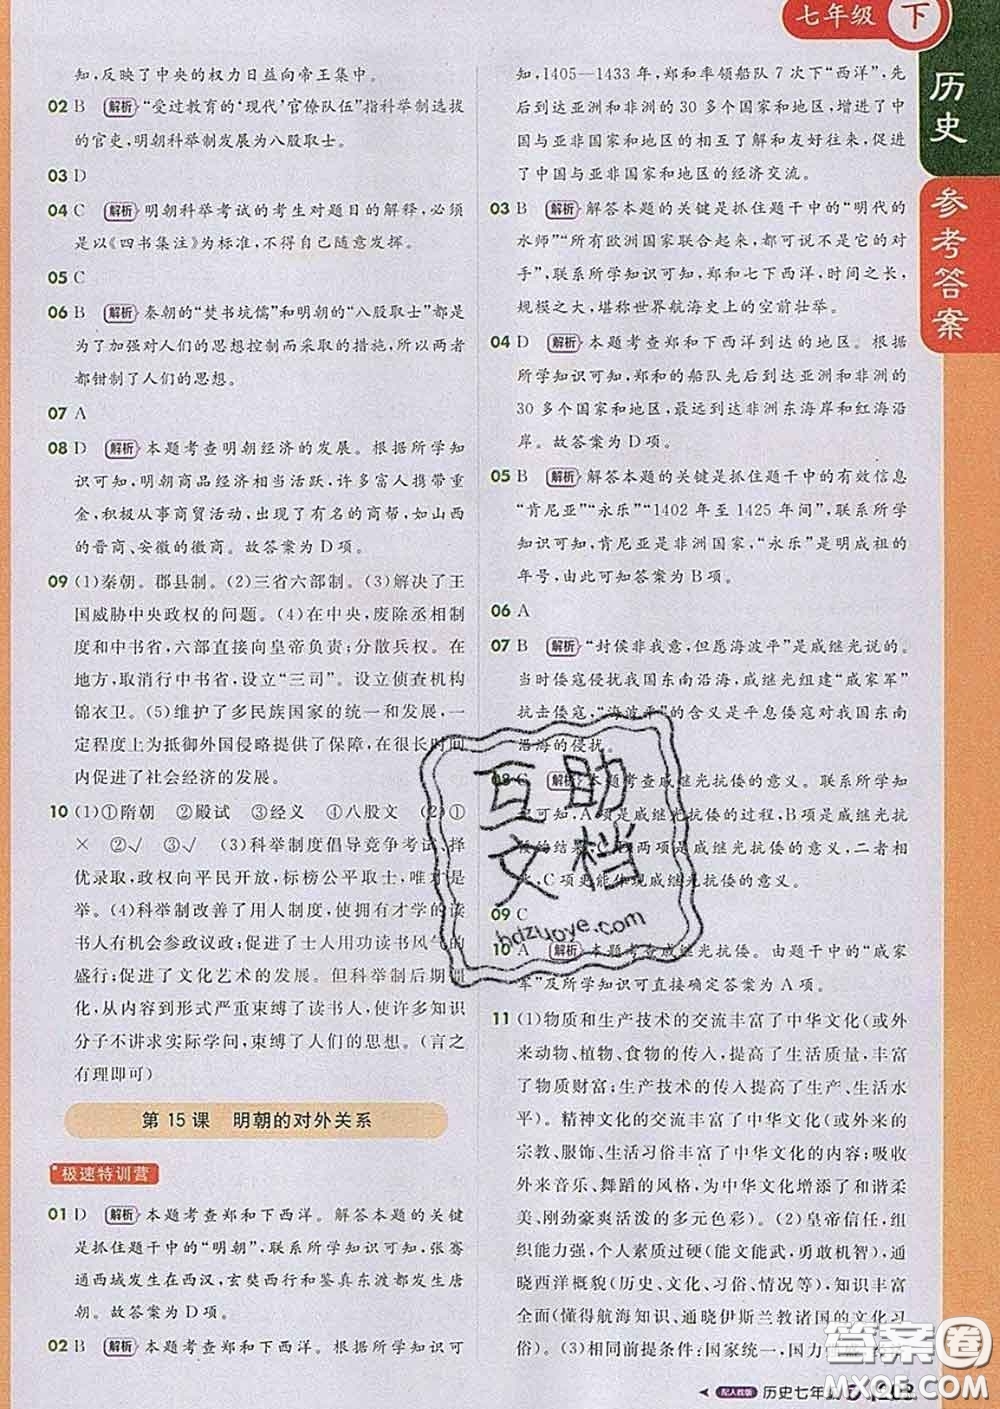 七年级 下
历史
参考答案
知，反映了中央的权力日益向帝王集中。
02 B 解析 “受过教育的‘现代’官僚队伍”指科举制选拔
的官吏，明朝科举制发展为八股取士。
03 D
04 C 解析 明朝科举考试的考生对题目的解释，必须
是以《四书集注》为标准，不得自己随意发挥。
05 C
06 B 解析 秦朝的“焚书坑儒”和明朝的“八股取士”都是
为了加强对人们的思想控制而采取的措施，所以两者
都钳制了人们的思想。
07 A
08 D 解析 本题考查明朝经济的发展。根据所学知
识可知，明朝商品经济相当活跃，许多富人携带重
金，积极从事商贸活动，出现了有名的商帮，如山西
的晋商、安徽的徽商。故答案为D项。
09 (1)秦朝。郡县制。(2)三省六部制。(3)解决了王
国威胁中央政权的问题。(4)在中央，废除丞相制
度和中书省，六部直接向皇帝负责；分散兵权。在
地方，取消行中书省，设立“三司”。设立侦查机构
锦衣卫。(5)维护了多民族国家的统一和发展，一
定程度上为抵御外国侵略提供了保障，在很长时间
内促进了社会经济的发展。
10 (1)①隋朝 ②殿试 ③经义 ④八股文 (2)①
× ②√ ③√ (3)科举制度倡导竞争考试，择
优录取，政权向平民开放，标榜公平取士，唯才是
举。(4)科举制改善了用人制度，使拥有才学的读
书人有机会参政议政；促进了士人用功读书风气的
盛行；促进了文化艺术的发展。但科举制后期僵
化，从内容到形式严重束缚了读书人，使许多知识
分子不讲求实际学问，束缚了人们的思想。(言之
有理即可)
第15课 明朝的对外关系
极速特训营
01 D 解析 本题考查郑和下西洋。解答本题的关键
是抓住题干中的“明朝”，联系所学知识可知，张骞
通西域发生在西汉，玄奘西行和鉴真东渡都发生唐
朝。故答案为D项。
02 B 解析 本题考查郑和下西洋。根据所学知识可
知，1405—1433年，郑和率领船队7次下“西洋”，先
后到达亚洲和非洲的30多个国家和地区，增进了中
国与亚非国家和地区的相互了解和友好往来，促进了
中国与亚非国家和地区的经济交流。
03 B 解析 解答本题的关键是抓住题干中的“明代的
水师”“所有欧洲国家联合起来，都可能不是他的对
手”，联系所学知识可知，郑和七下西洋，时间之长，
规模之大，堪称世界航海史上的空前壮举。
04 D 解析 本题考查郑和下西洋到达的地区。根据
所学知识可知，郑和的船队先后到达亚洲和非洲的
30多个国家和地区，最远到达非洲东海岸和红海沿
岸。故答案为D项。
05 B 解析 解答本题的关键是抓住题干中的有效信息
“肯尼亚”“永乐”“1402年至1425年间”，联系所学
知识可知，肯尼亚是非洲国家，“永乐”是明成祖的
年号，由此可知答案为B项。
06 A
07 B 解析 “封侯非我意，但愿海波平”是戚继光说的。
当时倭寇侵扰我国东南沿海，戚继光组建“戚家军”
抗击倭寇，“海波平”的含义是平息倭寇对我国东南
沿海的侵扰。
08 C 解析 本题考查戚继光抗倭的意义。联系所学知
识可知，A项是戚继光抗倭的过程，B项是戚继光抗
倭的结果；两项是戚继光抗倭的意义，二者相
，C项更能体现戚继光抗倭的意义。
09 C
10 A 解析 本题考查戚继光抗倭。由题干中的“戚家
军”及所学知识可直接确定答案为A项。
11 (1)物质和生产技术的交流丰富了中华文化(或外
来动物、植物、食物的传入，提高了生活质量，丰富
了物质财富；生产技术的传入提高了生产、生活水
平)。精神文化的交流丰富了中华文化(或外来的
宗教、服饰、生活习俗丰富了中华文化的内容；吸收
外来音乐、舞蹈的风格，为中华文化增添了和谐柔
美、刚劲豪爽活泼的多元色彩)。(2)皇帝信任，组
织能力强，个人素质过硬(能文能武，勇敢机智)，通
晓西洋概貌(历史、文化、习俗、情况等)，知识丰富
全面(懂得航海知识、通晓伊斯兰教诸国的文化习
俗)。(3)相同前提条件：国家统一，国力
互助
文档
hdzuoye.com
答案圈
MXQE.COM
配人教版 历史七年